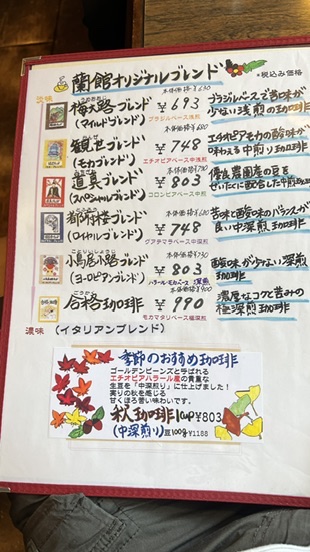 蘭館オリジナルブレンド *税込み価格
淡味
本体価格¥630
梅大路ブレンド ¥693 ブラジルベースで苦味が
(マイルドブレンド) ブラジルベース中浅煎 少ない浅煎の珈琲
本体価格¥680
観世ブレンド ¥748 エチオピアモカの酸味が
(モカブレンド) エチオピアベース中浅煎 味わえる中煎り珈琲
本体価格¥730
道真ブレンド ¥803 優良農園産の豆を
(スペシャルブレンド) コロンビアベース中煎 ぜいたくに配合した中煎珈琲
本体価格¥680
都府楼ブレンド ¥748 苦味と酸味のバランスが
(ロイヤルブレンド) グアテマラベース中深煎 良い中深煎り珈琲
本体価格¥730
小鳥居小路ブレンド ¥803 酸味が少ない深煎
(ヨーロピアンブレンド) ハラールモカベース 深煎 珈琲
本体価格¥900
宕格珈琲 ¥990 濃厚なコクと苦みの
モカマタリベース極深煎 極深煎珈琲
濃味 (イタリアンブレンド)
季節のおすすめ珈琲
ゴールデンビーンズと呼ばれる
エチオピアハラール産の貴重な
生豆を「中深煎り」に仕上げました!
実りの秋を感じる
甘くほろ苦い味わいです。
秋珈琲 1cup¥803
(中深煎り) 豆100g¥1188